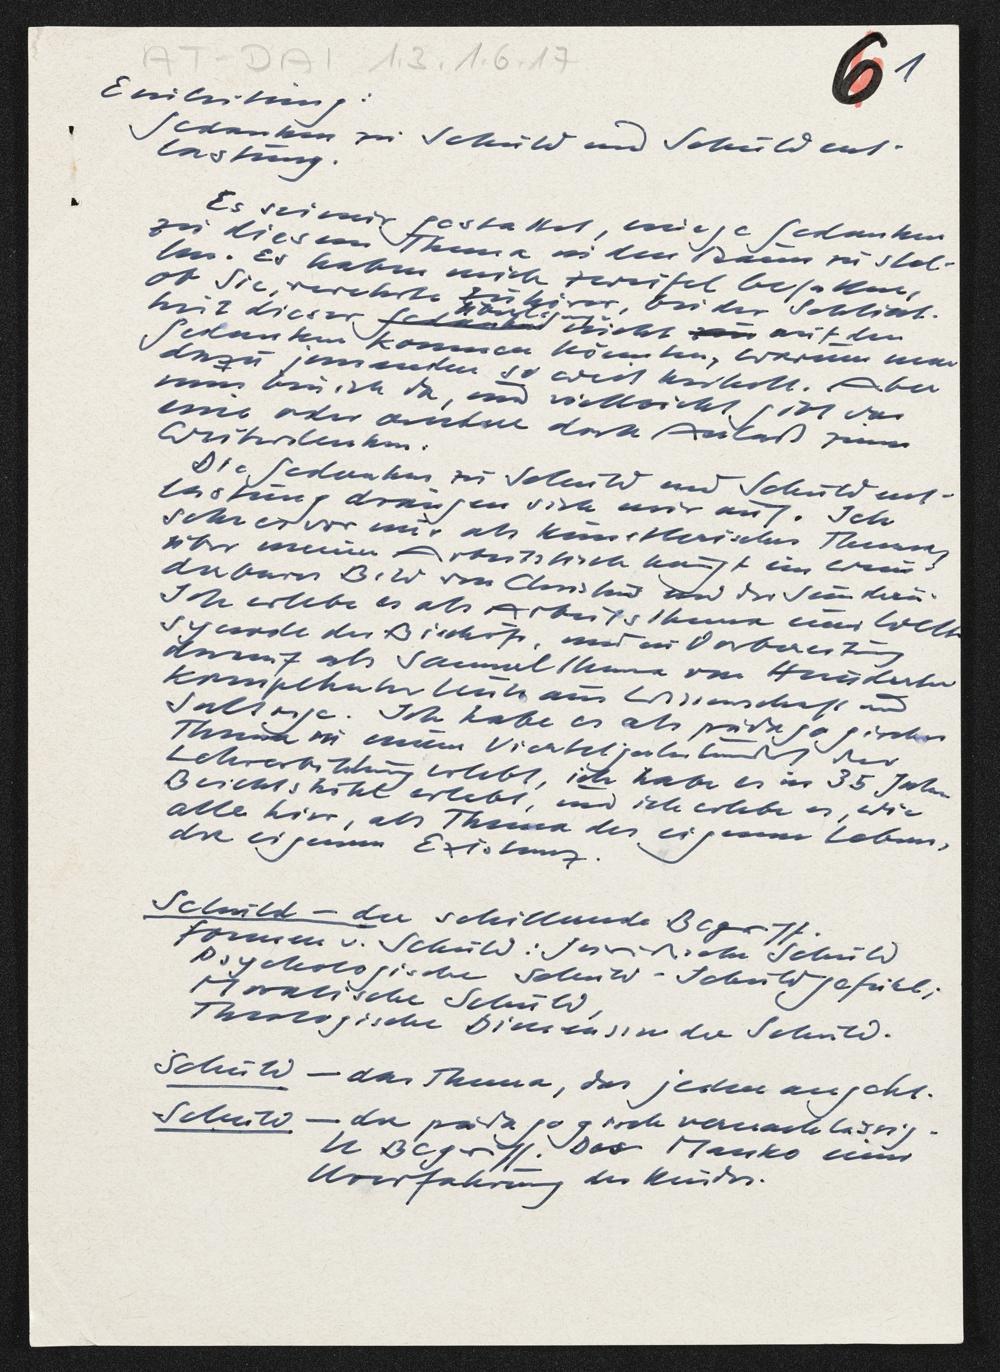 AT-DAI 1.3.1.6.17
6 1
Einleitung:
Gedanken zu Schuld und Schuldent-
lastung.
Es sei mir gestattet, einige Gedanken
zu diesem Thema in den Raum zu stel-
len. Es haben mich Zweifel befallen,
ob Sie, verehrte Zuhörer, bei der Schlicht-
heit dieser nicht auf den
Gedanken kommen könnten, warum man
dazu jemanden so weit herholt. Aber
nun bin ich da, und vielleicht gibt das
eine oder andere doch Anlaß zum
Weiterdenken.
Die Gedanken zu Schuld und Schuldent-
lastung drängen sich mir auf. Ich
sehe es vor mir als künstlerisches Thema,
über meinem Arbeitstisch hängt ein wun-
derbares Bild von Christus und der Sünderin.
Ich erlebe es als Arbeitsthema einer Welt-
synode der Bischöfe, und in Vorbereitung
darauf als Sammelthema von Hunderten
kompetenter Leute aus Wissenschaft und
Seelsorge. Ich habe es als pädagogisches
Thema in einem Vierteljahrhundert der
Lehrerbildung erlebt, ich habe es in 35 Jahren
Beichtstuhl erlebt, und ich erlebe es, wie
alle hier, als Thema des eigenen Lebens,
der eigenen Existenz.
Schuld – der schillernde Begriff.
Formen v. Schuld: Juridische Schuld
Psychologische Schuld - Schuldgefühl;
Moralische Schuld,
Theologische Dimension der Schuld.
Schuld – das Thema, das jeden angeht.
Schuld – der pädagogisch vernachlässig-
te Begriff. Das Manko einer
Urerfahrung des Kindes.